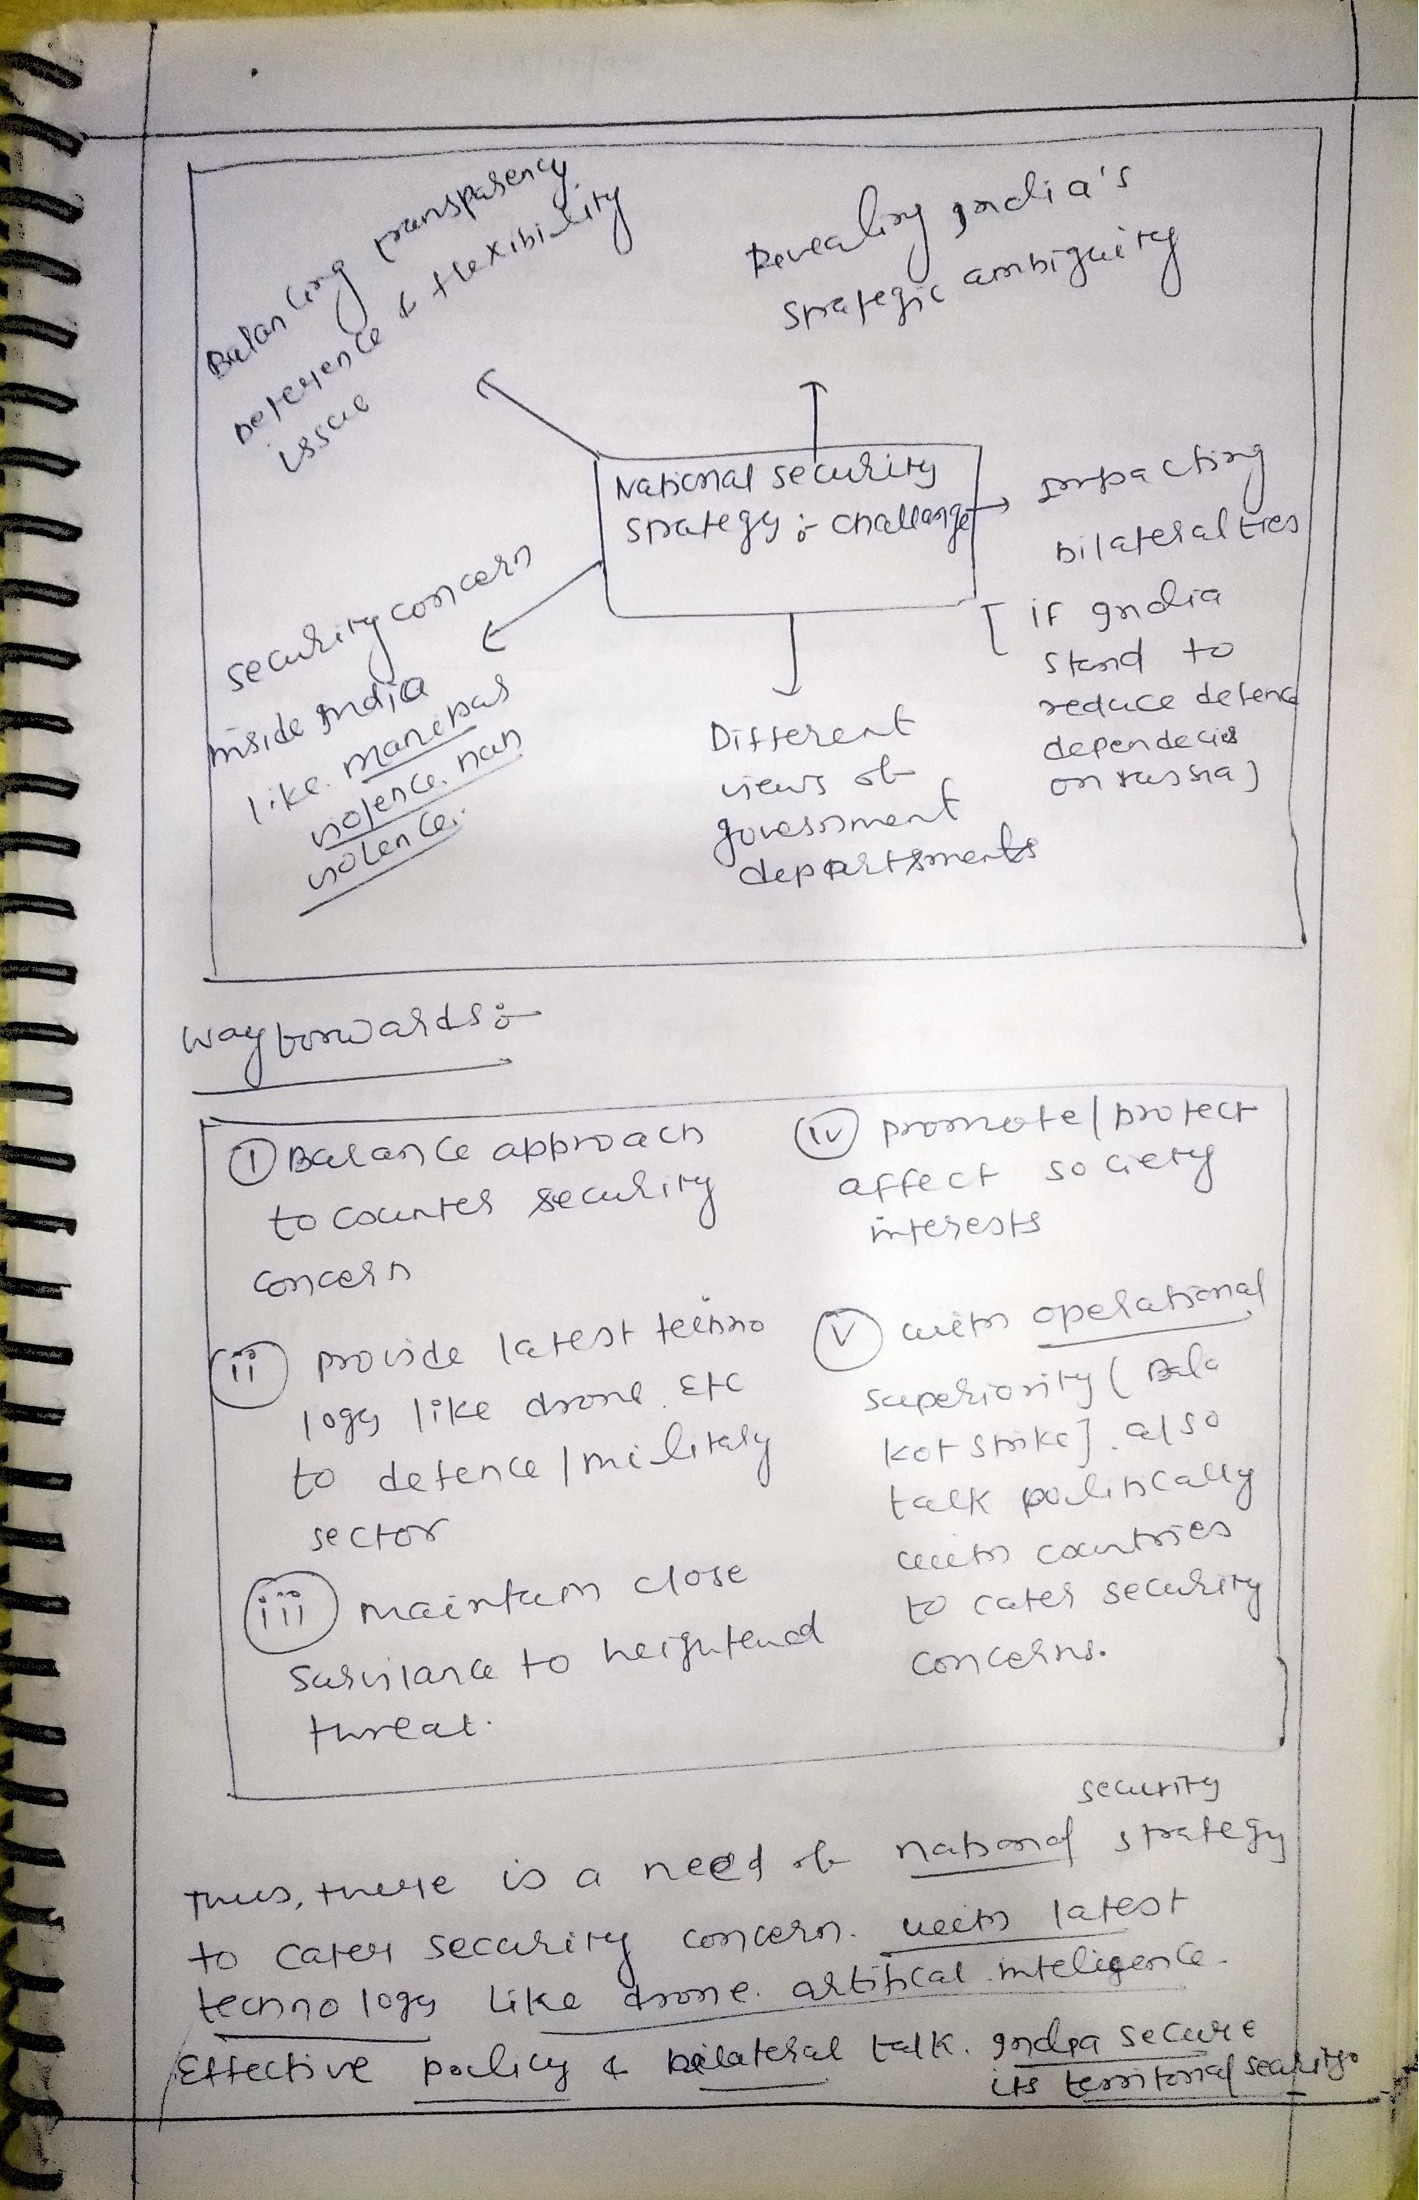 Balancing transparency
Deterence & flexibility
issue
Revealing India's
strategic ambiguity
National security
strategy :- challange
Impacting
bilateral ties
[ if India
stand to
reduce defence
dependecies
on russia ]
security concern
inside India
like. manipur
violence. nuh
violence.
Different
views of
government
departments
way forwards :-
(i) Balance approach
to counter security
concern
(ii) provide latest techno
logy like drone. etc
to defence / military
sector
(iii) maintain close
survilance to heightened
threat.
(iv) promote / protect
affect society
interests
(v) with operational
superiority ( Bala
kot strike ]. also
talk politically
with countries
to cater security
concerns.
security
Thus, there is a need of national strategy
to cater security concern. with latest
technology like drone. artifical intelligence.
Effective policy & bilateral talk. India secure
its territorial security.